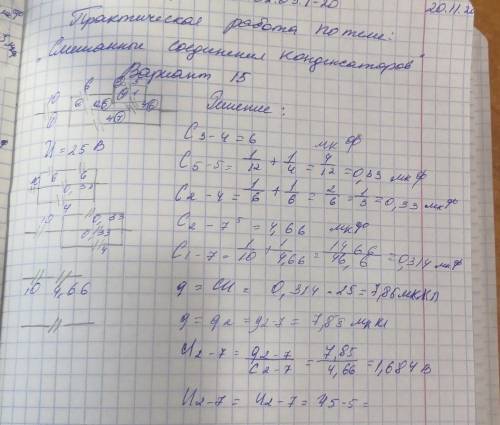 20.11.20
Практическая работа по теме:
"Смешанные соединения кондисаторов"
Вариант 15
Решение:
U = 25 В
C3-4 = 6 мкФ
C5-5 = 1/12 + 1/4 = 4/12 = 0,33 мкФ
C2-4 = 1/6 + 1/6 = 2/6 = 1/3 = 0,33 мкФ
C2-7 = 4,66 мкФ
C1-7 = 1/10 + 1/4,66 = 14,66/46,6 = 0,314 мкФ
q = CU = 0,314 · 25 = 7,86 мкКл
q = q2 = q2-7 = 7,85 мкКл
U2-7 = q2-7/C2-7 = 7,85/4,66 = 1,684 В
U2-7 = U2-7 = U5-5 =
10 4,66